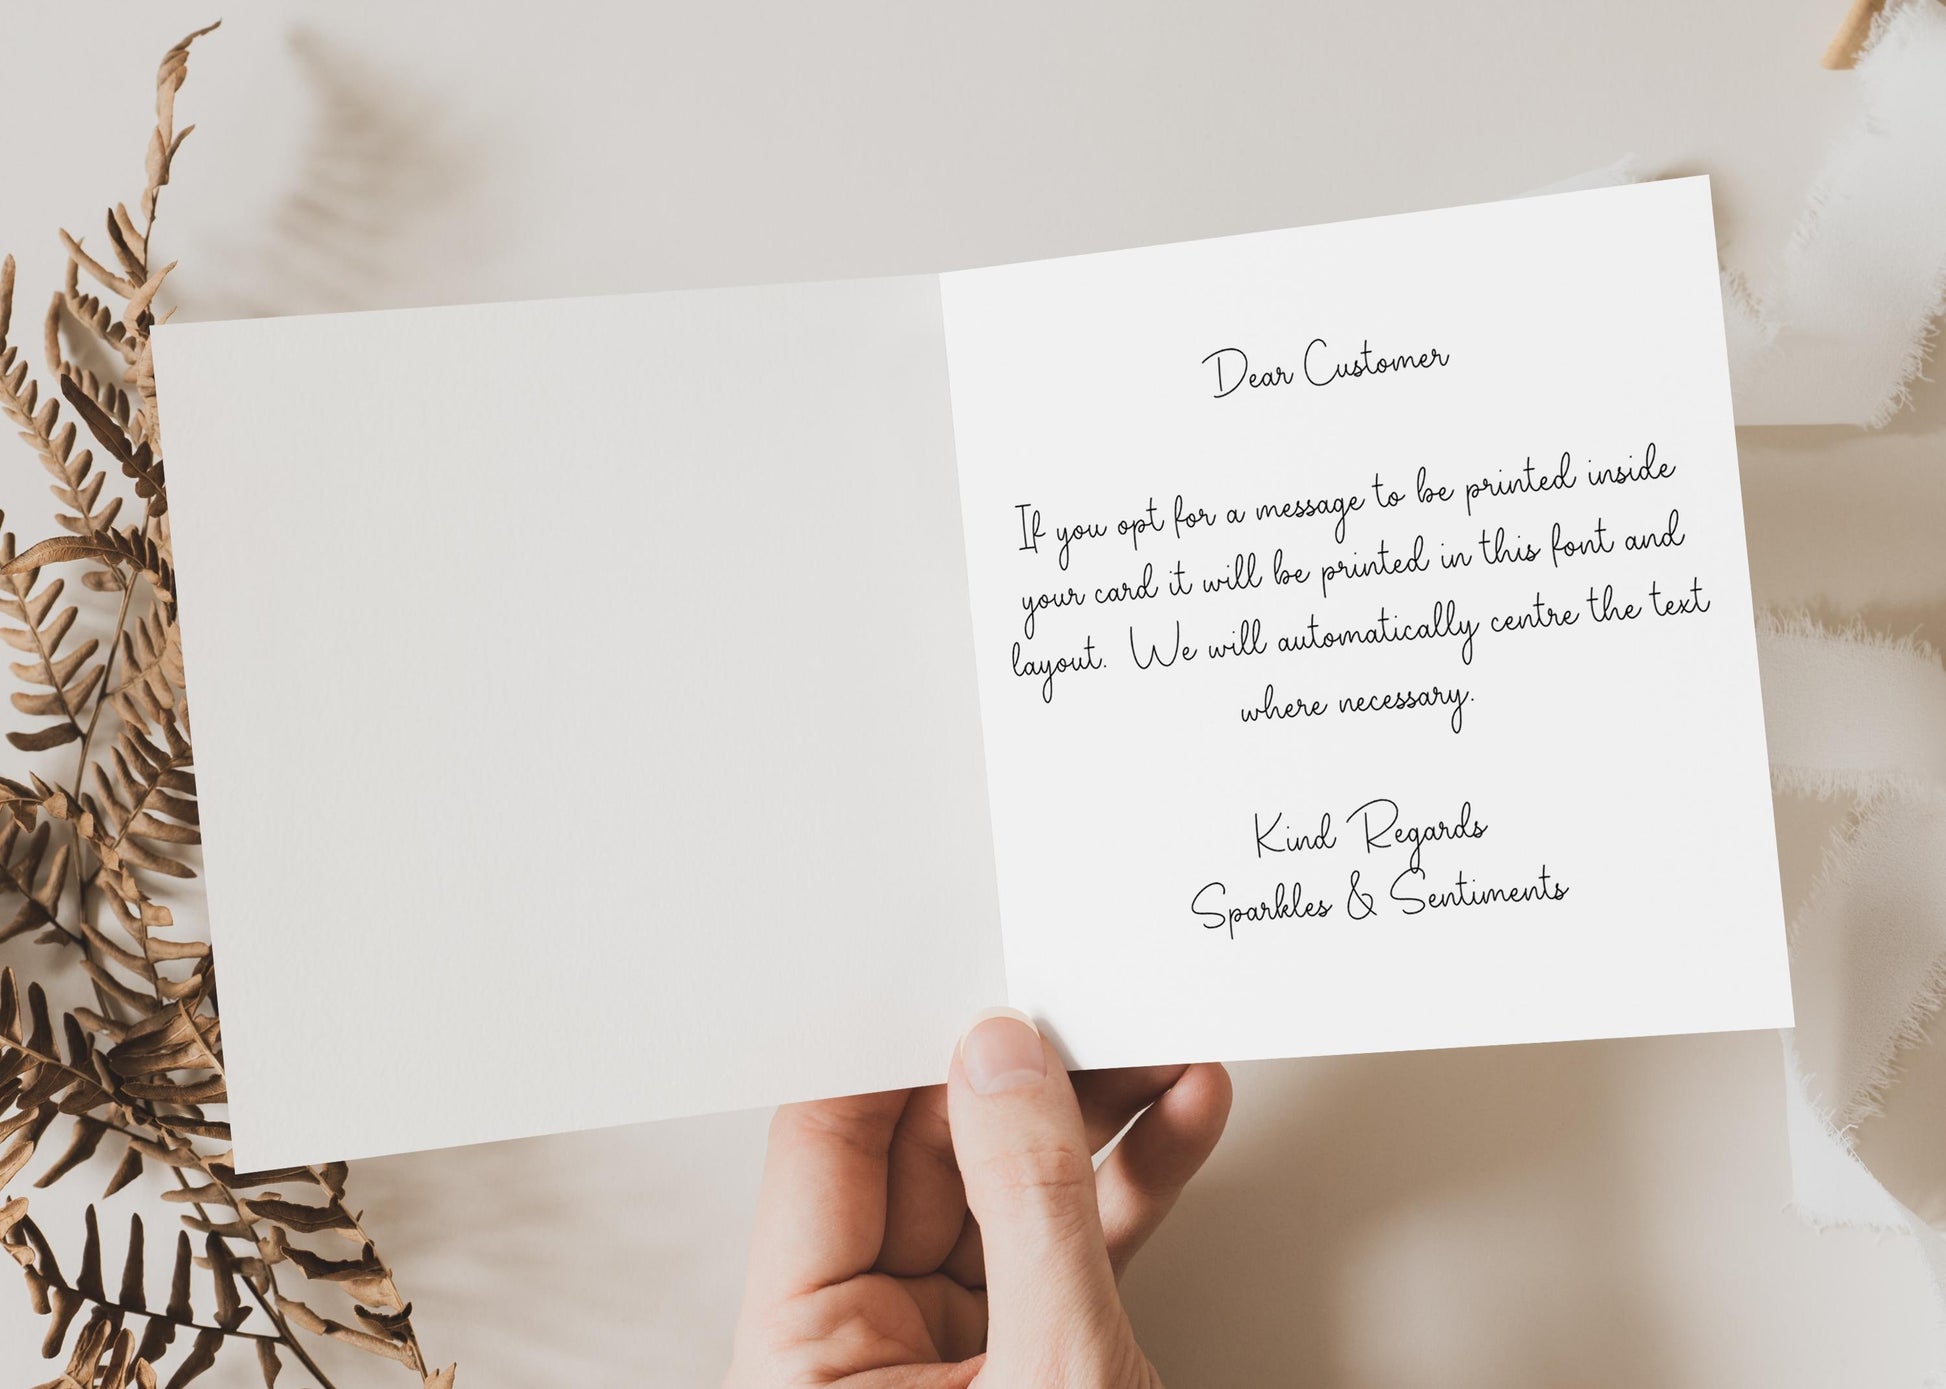 Dear Customer
If you opt for a message to be printed inside
your card it will be printed in this font and
layout. We will automatically centre the text
where necessary.
Kind Regards
Sparkles & Sentiments